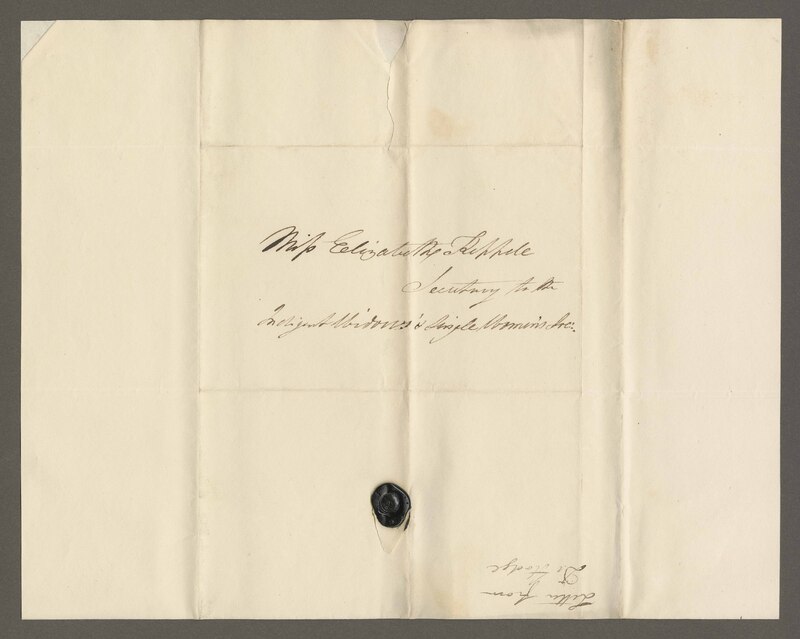 Miss Elizabeth Keppele
Secretary to the
Indigent Widows's & Single Women's Soc:
Letter from
Dr Hodge